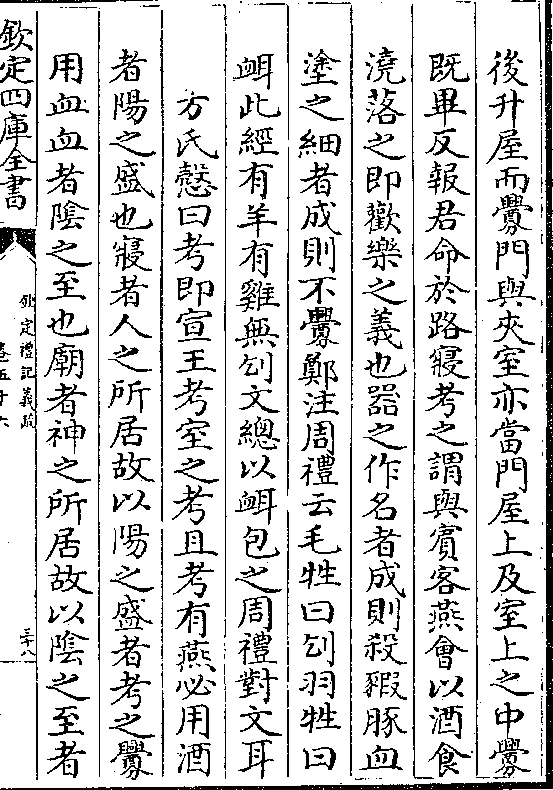 後升屋而釁門與夾室亦當門屋上及室上之中釁
既畢反報君命於路寢考之謂與賓客燕會以酒食
澆落之即歡樂之義也器之作名者成則殺豭豚血
塗之細者成則不釁鄭注周禮云毛牲曰刉羽牲曰
衈此經有羊有雞無刉文總以衈包之周禮對文耳
方氏慤曰考即宣王考室之考且考有燕必用酒
者陽之盛也寢者人之所居故以陽之盛者考之釁
用血血者陰之至也廟者神之所居故以陰之至者
欽定四庫全書
欽定禮記義疏
卷五十六
三十八